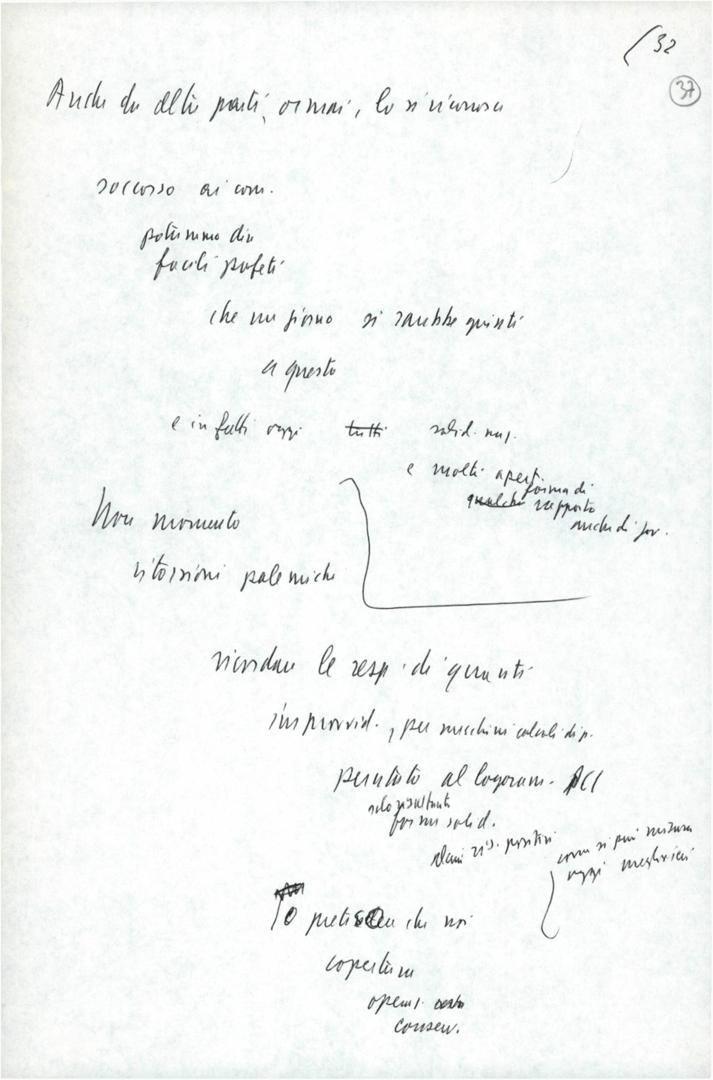 (32
37
Anche da altre parti, ormai, lo si riconosce
soccorso ai com.
potremmo dire
facili profeti
che un giorno si sarebbe giunti
a questo
e infatti oggi tutti solid. naz.
e molti aperti
forma di
qualche rapporto
anche di gov.
Non momento
ritorsioni polemiche
ricordare le resp. di quanti
improvvid., per meschini calcoli di p.
puntato al logoram. PCI
solo risultati
forme solid.
alcuni ris. positivi
come si può misurare
oggi
o preteso che noi
copertura
operaz.
conserv.